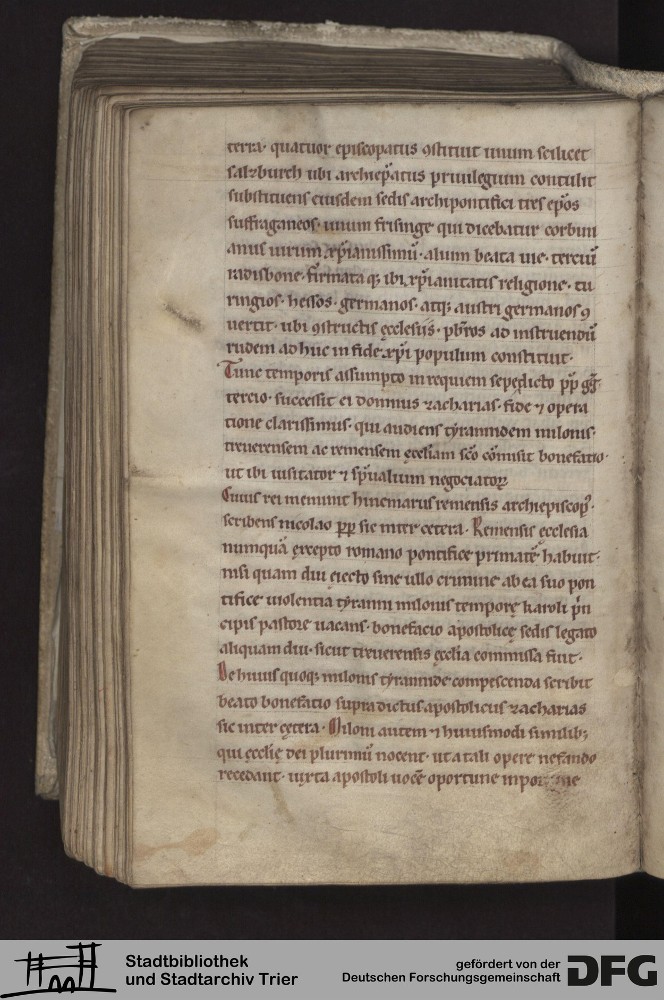 terra· quatuor episcopatus ꝯstituit unum scilicet
salzburch ubi archiep̃atus priuilegium contulit
substituens eiusdem sedis archipontifici tres ep̃os
suffraganeos· unum frisinge qui dicebatur corbini
anus uirum xp̃ianissimũ· alium beata uie· terciũ
radisbone· firmata q; ibi xp̃ianitatis religione· tu
ringios· hessos· germanos· atq; austri germanos ꝯ
uertit· ubi ꝯstructis ęcclesiis· pb̃ros ad instruendũ
rudem ad huc in fide xp̃i populum constituit·
Tunc temporis assumpto in requiem sepedicto pp̃ gg̃·
tercio· successit ei domnus zacharias· fide ⁊ opera
tione clarissimus· qui audiens tyrannidem milonis·
treuerensem ac remensem ęccl̃iam sc̃o cõmisit bonefacio·
ut ibi uisitator ⁊ sp̃ualium negociatoꝝ
Cuius rei meminit hincmarus remensis archiepiscopꝰ·
scribens nicolao pp̃ sic inter cetera· Remensis ęcclesia
numquã excepto romano pontifice primatẽ habuit·
nisi quam diu eiecto sine ullo crimine ab ea suo pon
tifice uiolentia tyranni milonis temporę karoli p̃n
cipis pastore uacans· bonefacio apostolicę sedis legato
aliquam diu· sicut treuerensis ęcclia commissa fuit·
De huius quoq; milonis tyrannide compescenda scribit
beato bonefacio supra dictus apostolicus zacharias
sic inter cętera· Milom autem ⁊ huiusmodi similib;
qui ęcclię dei plurimũ nocent· ut a tali opere nefando
recedant· iuxta apostoli uocẽ oportune
Stadtbibliothek
und Stadtarchiv Trier
gefördert von der
Deutschen Forschungsgemeinschaft
DFG